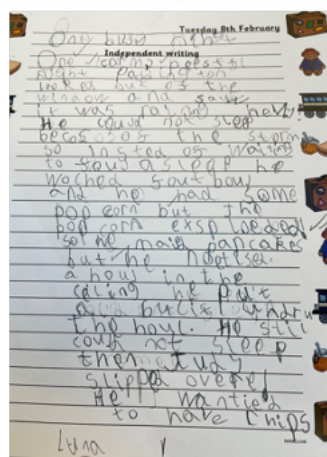 Tuesday 8th February
One busy night
Independent writing
One calm peestfl
night Paddington
looked out of the
window and saw
it was raining hevly
He coud not sleep
becos of the storm
so insted of waiting
to fall asleep he
woched
and he had some
pop corn but the
pop corn exsploeded
so he maid pancakes
but he notised
a howl in the
celing he put
a bucit undru
the houl. He stil
coud not sleep
then
slipped over
He wanted
to have chips